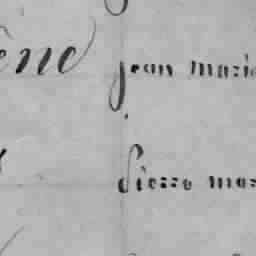 ène jean marie
pierre mar